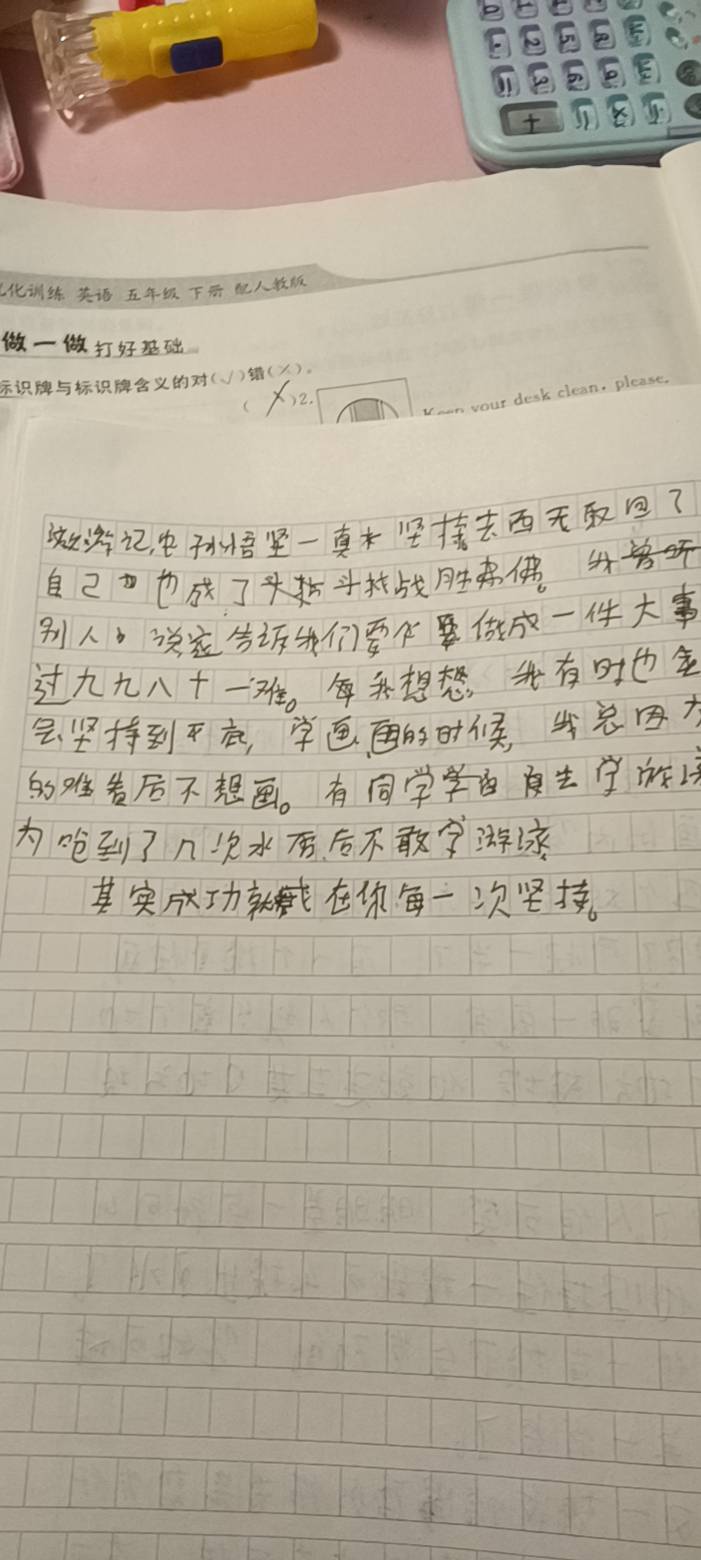 化训练 英语 五年级 下册 配人教版
做一做 打好基础
标识牌与标识牌含义的对(√)错(×)。
(×)2.
Keep your desk clean, please.
游记,中孙悟空一直坚持去西天取回了
自己也成了斗战胜佛。我
别人 告诉我们要 做成一件大事
过九九八十一难。每 我想想,我有时也会
会坚持到 底,学画画的时候,我总因为
的难 后不想画。有同学学 去学游泳
为呛到了几次水 后不敢学游泳
其实成功就藏在你每一次坚持。